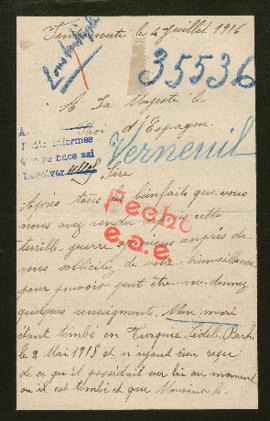 le 4 Juillet 1916
35536
A Sa Majesté le
Roi d'Espagne
Verneuil
Pedir informes
Que se hace así
Devolver
Sire
Après tous les bienfaits que vous
nous avez rendu cette
terrible guerre je viens auprès de
vous solliciter de votre bienveillance
pour pouvoir peut être me donnez
quelques renseigments. Mon mari
étant tombé en Turquie Sedel-Barh
le 2 Mai 1915 et n'ayant rien reçu
de ce qu'il possédait sur lui au moment
ou il est tombé et que Monsieur le
Hecho
e.a.e.